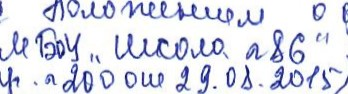 положением о
МБОУ „Школа №86"
пр. №200 от 29.08.2015)